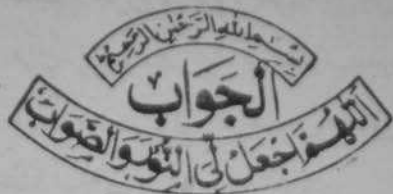 بِسْمِ اللهِ الرَّحْمٰنِ الرَّحِيْمِ
الْجَوَابُ
اَللّٰهُمَّ اجْعَلْ لِّی النُّوْرَ وَالصَّوَابَ